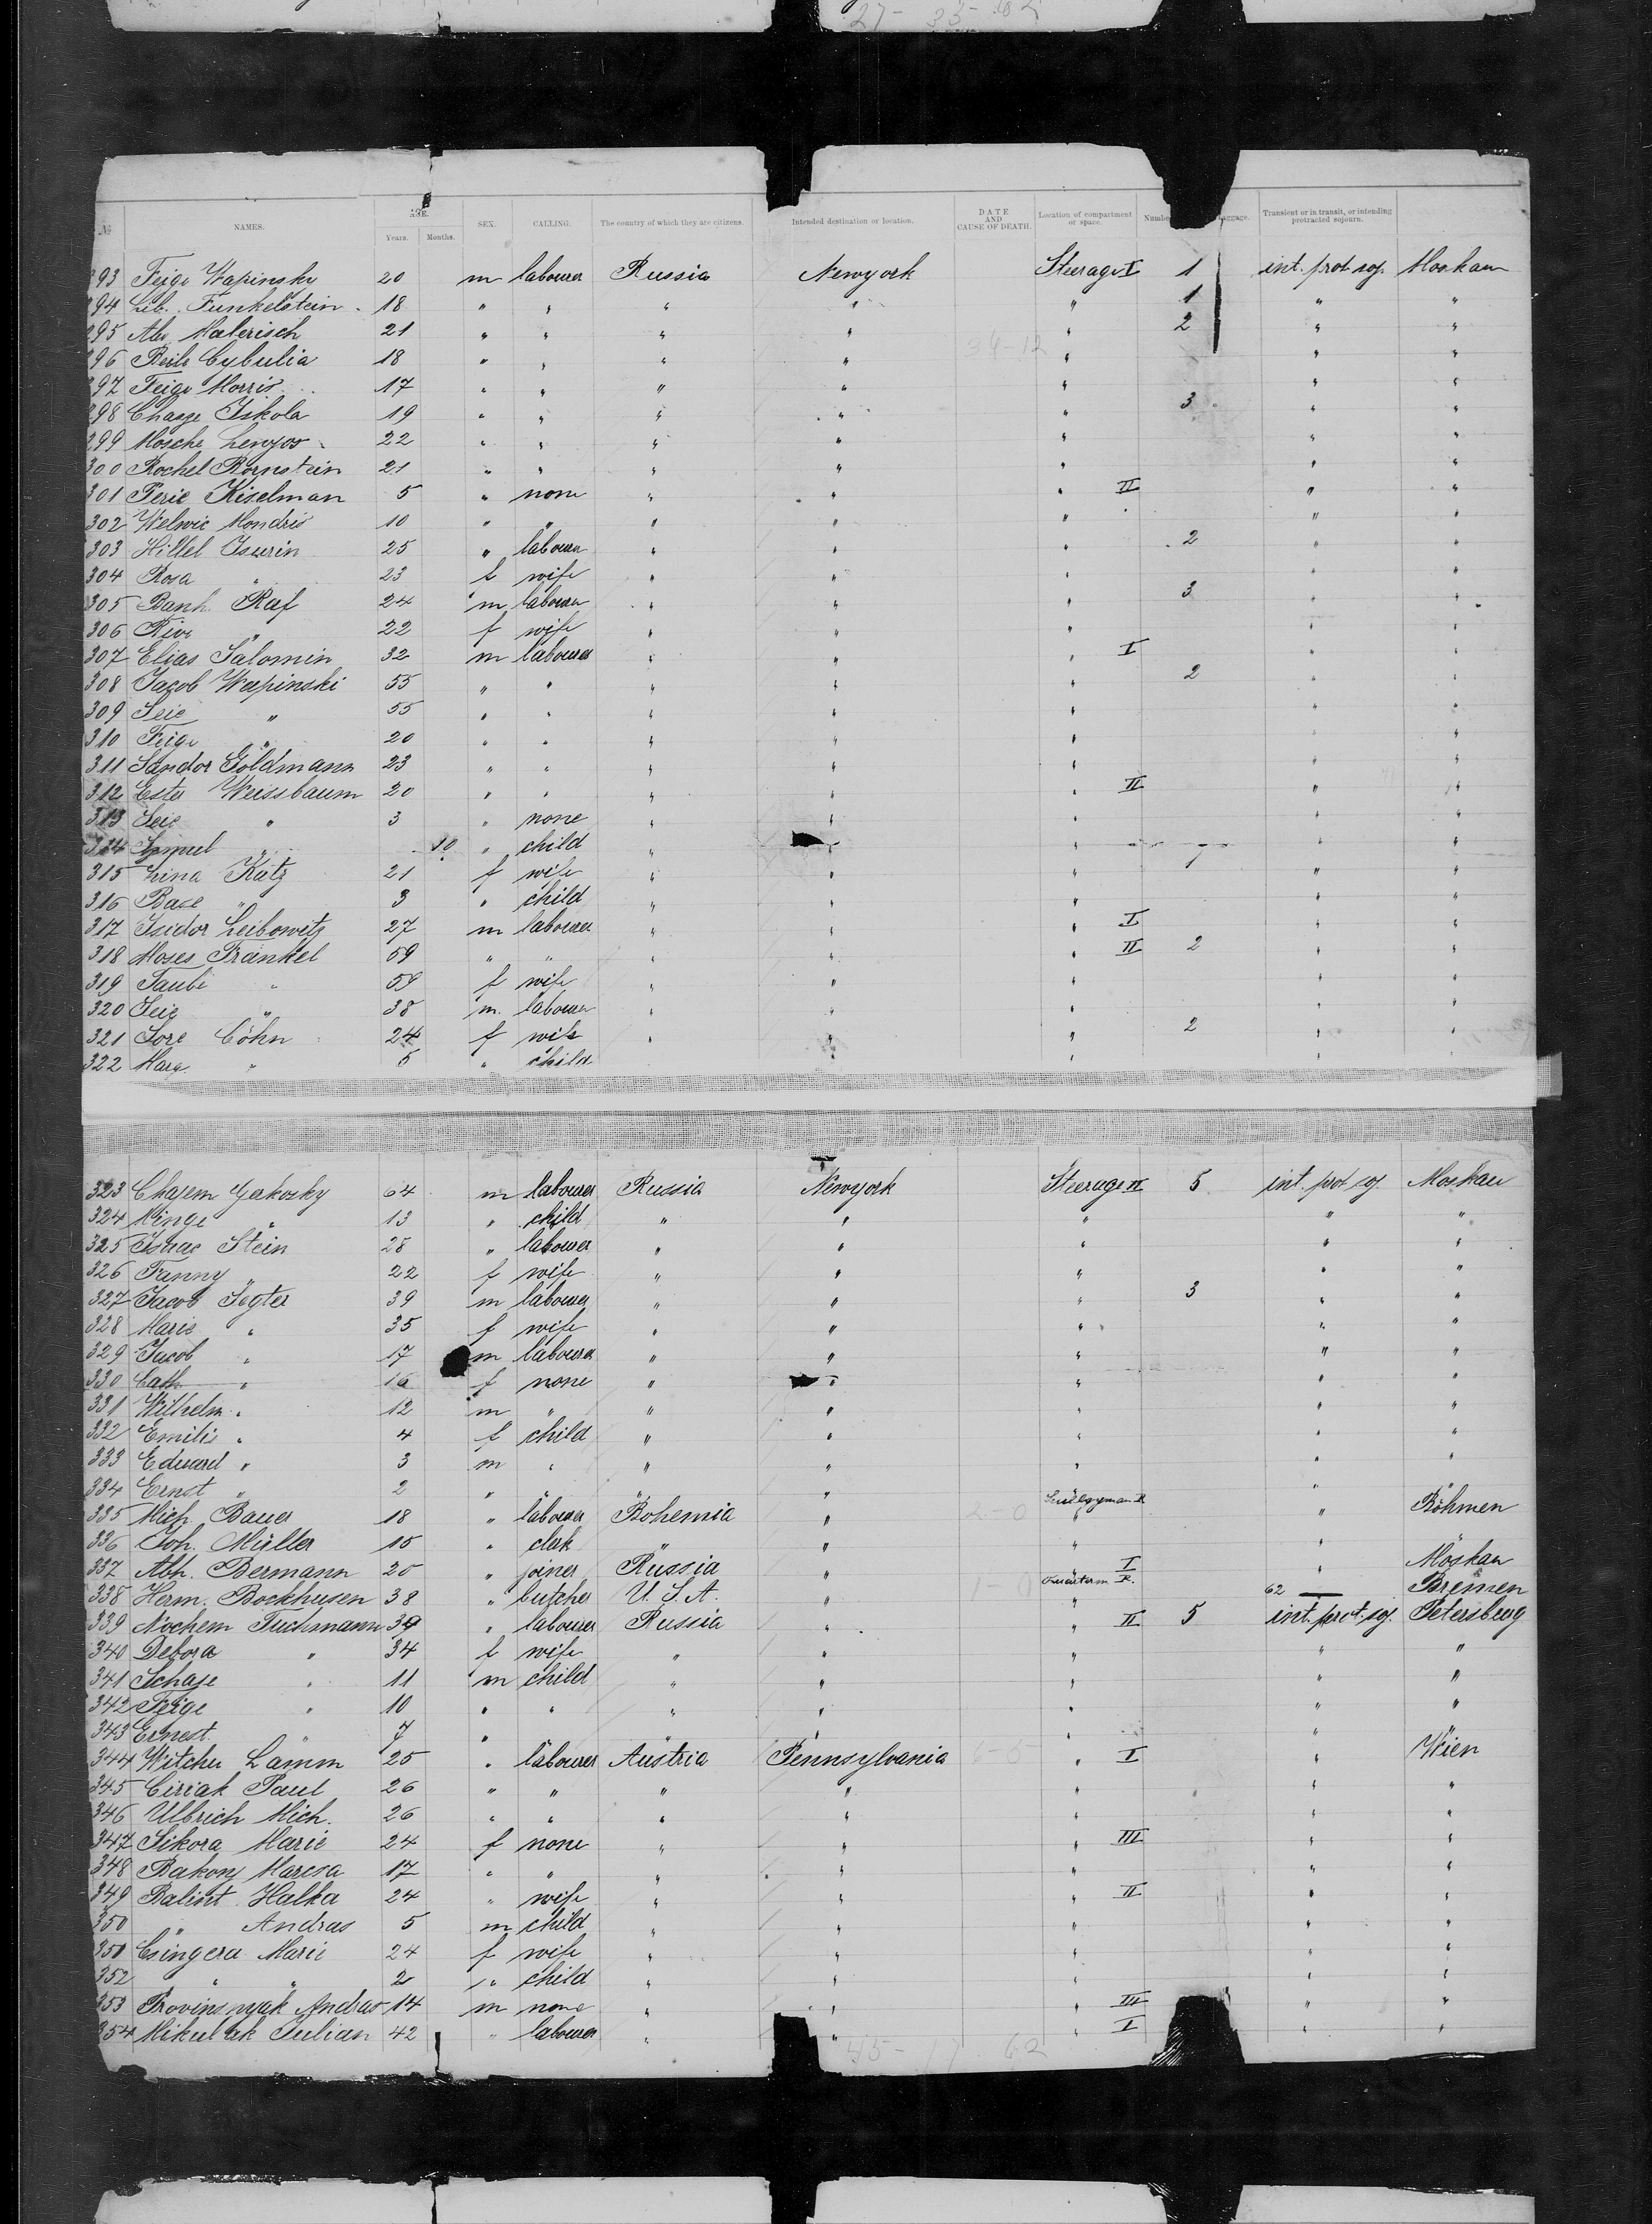 27- 33- 62
№ NAMES. AGE. Years. Months. SEX. CALLING. The country of which they are citizens. Intended destination or location. DATE AND CAUSE OF DEATH. Location of compartment or space. Number baggage. Transient or in transit, or intending protracted sojourn.
293 Feige Wapinsky 20 m labourer Russia Newyork Steerage I 1 int. prot. soj. Moskau
294 Leib. Funkelstein 18 " " " " " 1 " "
295 Abr. Malerisch 21 " " " " " 2 " "
296 Beile Cybulia 18 " " " " 34-12 " " "
297 Feige Morris 17 " " " " " " "
298 Chasge Iskola 19 " " " " " 3 " "
299 Mosche 22 " " " " " " "
300 Rochel Bornstein 21 " " " " " " "
301 Perie Kiselman 5 " none " " " II " "
302 Welwic Mondris 10 " " " " " " "
303 Hillel Isurin 25 " labourer " " " 2 " "
304 Rosa " 23 f wife " " " " "
305 Banh. Raf 24 m labourer " " " 3 " "
306 Riwe " 22 f wife " " " " "
307 Elias Salomin 32 m labourer " " " I " "
308 Jacob Wapinski 55 " " " " " 2 " "
309 Seie " 55 " " " " " " "
310 Feige " 20 " " " " " " "
311 Sandor Goldmann 23 " " " " " " "
312 Ester Weissbaum 20 " " " " " II " "
313 Seie " 3 " none " " " " "
314 " 10 " child " " " " "
315 Lina Katz 21 f wife " " " 1 " "
316 Base " 3 " child " " " " "
317 Isidor Leibowitz 27 m labourer " " " I " "
318 Moses Frankel 59 " " " " " II 2 " "
319 Taube " 59 f wife " " " " "
320 Seie " 38 m. labourer " " " " "
321 Sore Cöhn 24 f wife " " " 2 " "
322 " 5 " child " " " " "
323 Chajem Gerkosky 64 m labourer Russia Newyork Steerage II 5 int. prot soj. Moskau
324 Minge " 13 " child " " " " "
325 Isaac Stein 28 " labourer " " " " "
326 Fanny " 22 f wife " " " " "
327 Jacob Segter 39 m labourer " " " 3 " "
328 Marie " 35 f wife " " " " "
329 Jacob " 17 m labourer " " " " "
330 Cath " 16 f none " " " " "
331 Wilhelm " 12 m " " " " " "
332 Emilie " 4 f child " " " " "
333 Eduard " 3 m " " " " " "
334 Ernst " 2 " " " " "
335 Mich. Bauer 18 " labourer Bohemia " 2-0 " " Böhmen
336 Joh. Müller 15 " clerk " " " "
337 Abh. Bermann 20 " joiner Russia " " I " Moskau
338 Herm. Bockhusen 38 " butcher U. S. A. " 1-0 62 — Bremen
339 Nochem Tuchmann 39 " labourer Russia " " II 5 int. prot. soj. Petersburg
340 Debora " 34 f wife " " " " "
341 Schaje " 11 m child " " " " "
342 Feige " 10 " " " " " " "
343 Ernest " 7 " " " "
344 Witchu Lamm 25 " labourer Austria Pennsylvania 6-5 " I " Wien
345 Ciriak Paul 26 " " " " " " "
346 Ulbrich Mich. 26 " " " " " " "
347 Sikora Marie 24 f none " " " III " "
348 Bakony Maresa 17 " " " " " " "
349 Balint Halka 24 " wife " " " II " "
350 " Andras 5 m child " " " " "
351 Csingera Marie 24 f wife " " " " "
352 " " 2 " child " " " " "
353 Provinsnyak Andras 14 m none " " " III " "
354 Mikulak Julian 42 " labourer " " " I " "
45- 17 62